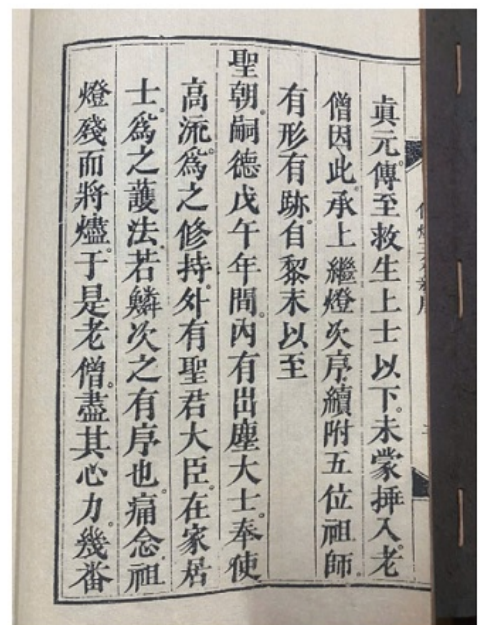 眞元。傳至救生上士以下。未蒙挿入。老
僧因此。承上繼燈次序。續附五位祖師。
有形有跡。自黎末以至
聖朝。嗣德戊午年間。內有出塵大士。奉使
高流。爲之修持。外有聖君大臣。在家居
士。爲之護法。若鱗次之有序也。痛念祖
燈殘而將燼。于是老僧。盡其心力。幾番